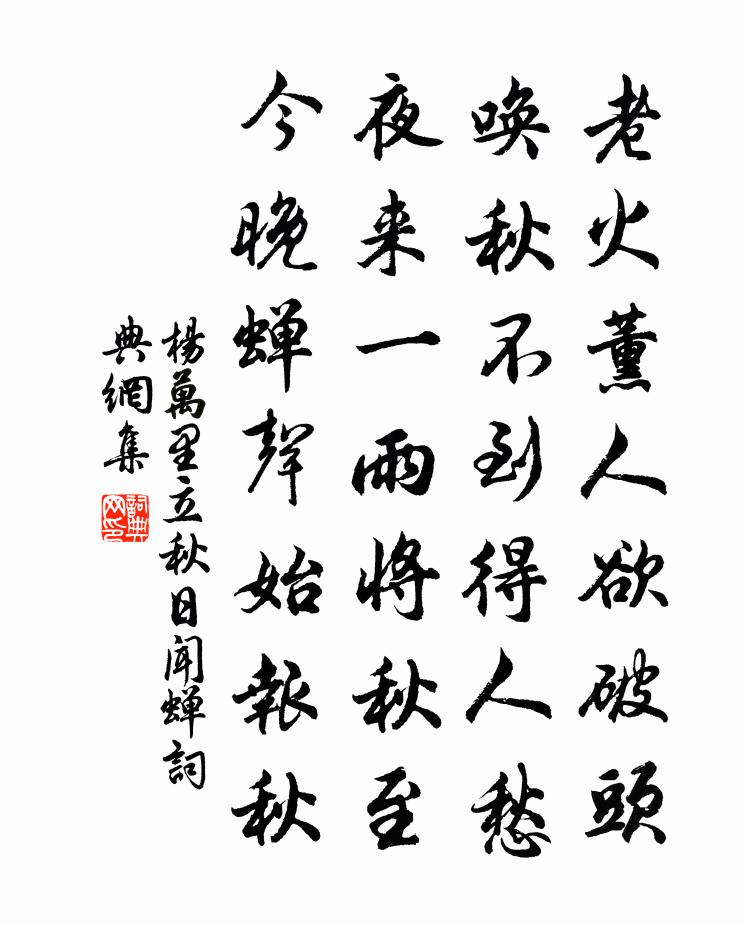 老火薰人欲破頭
喚秋不到得人愁
夜来一雨將秋至
今晚蝉聲始報秋
楊萬里立秋日聞蝉詞
典網集
詞典
网印